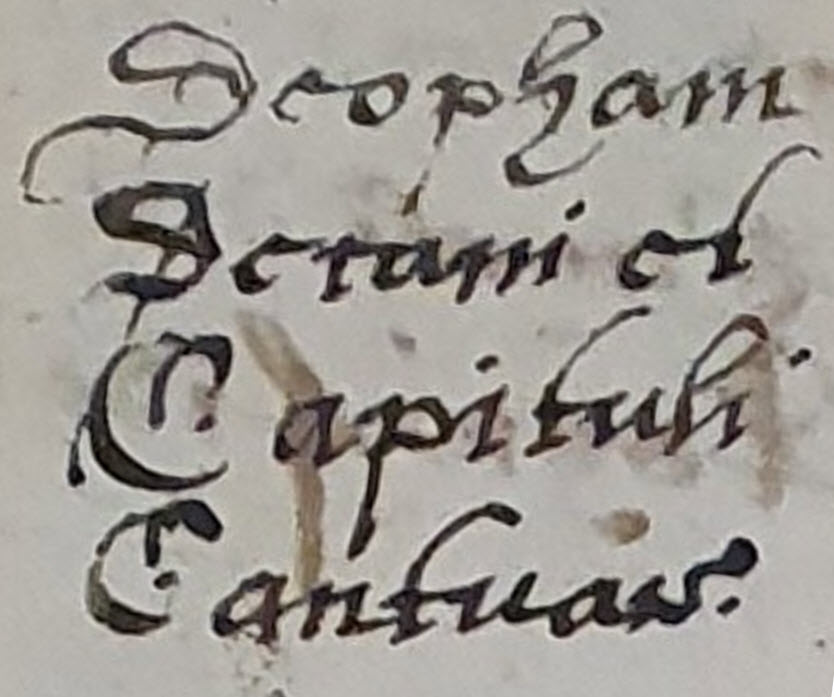 Deopham
Decani et
Capituli
Cantuar.